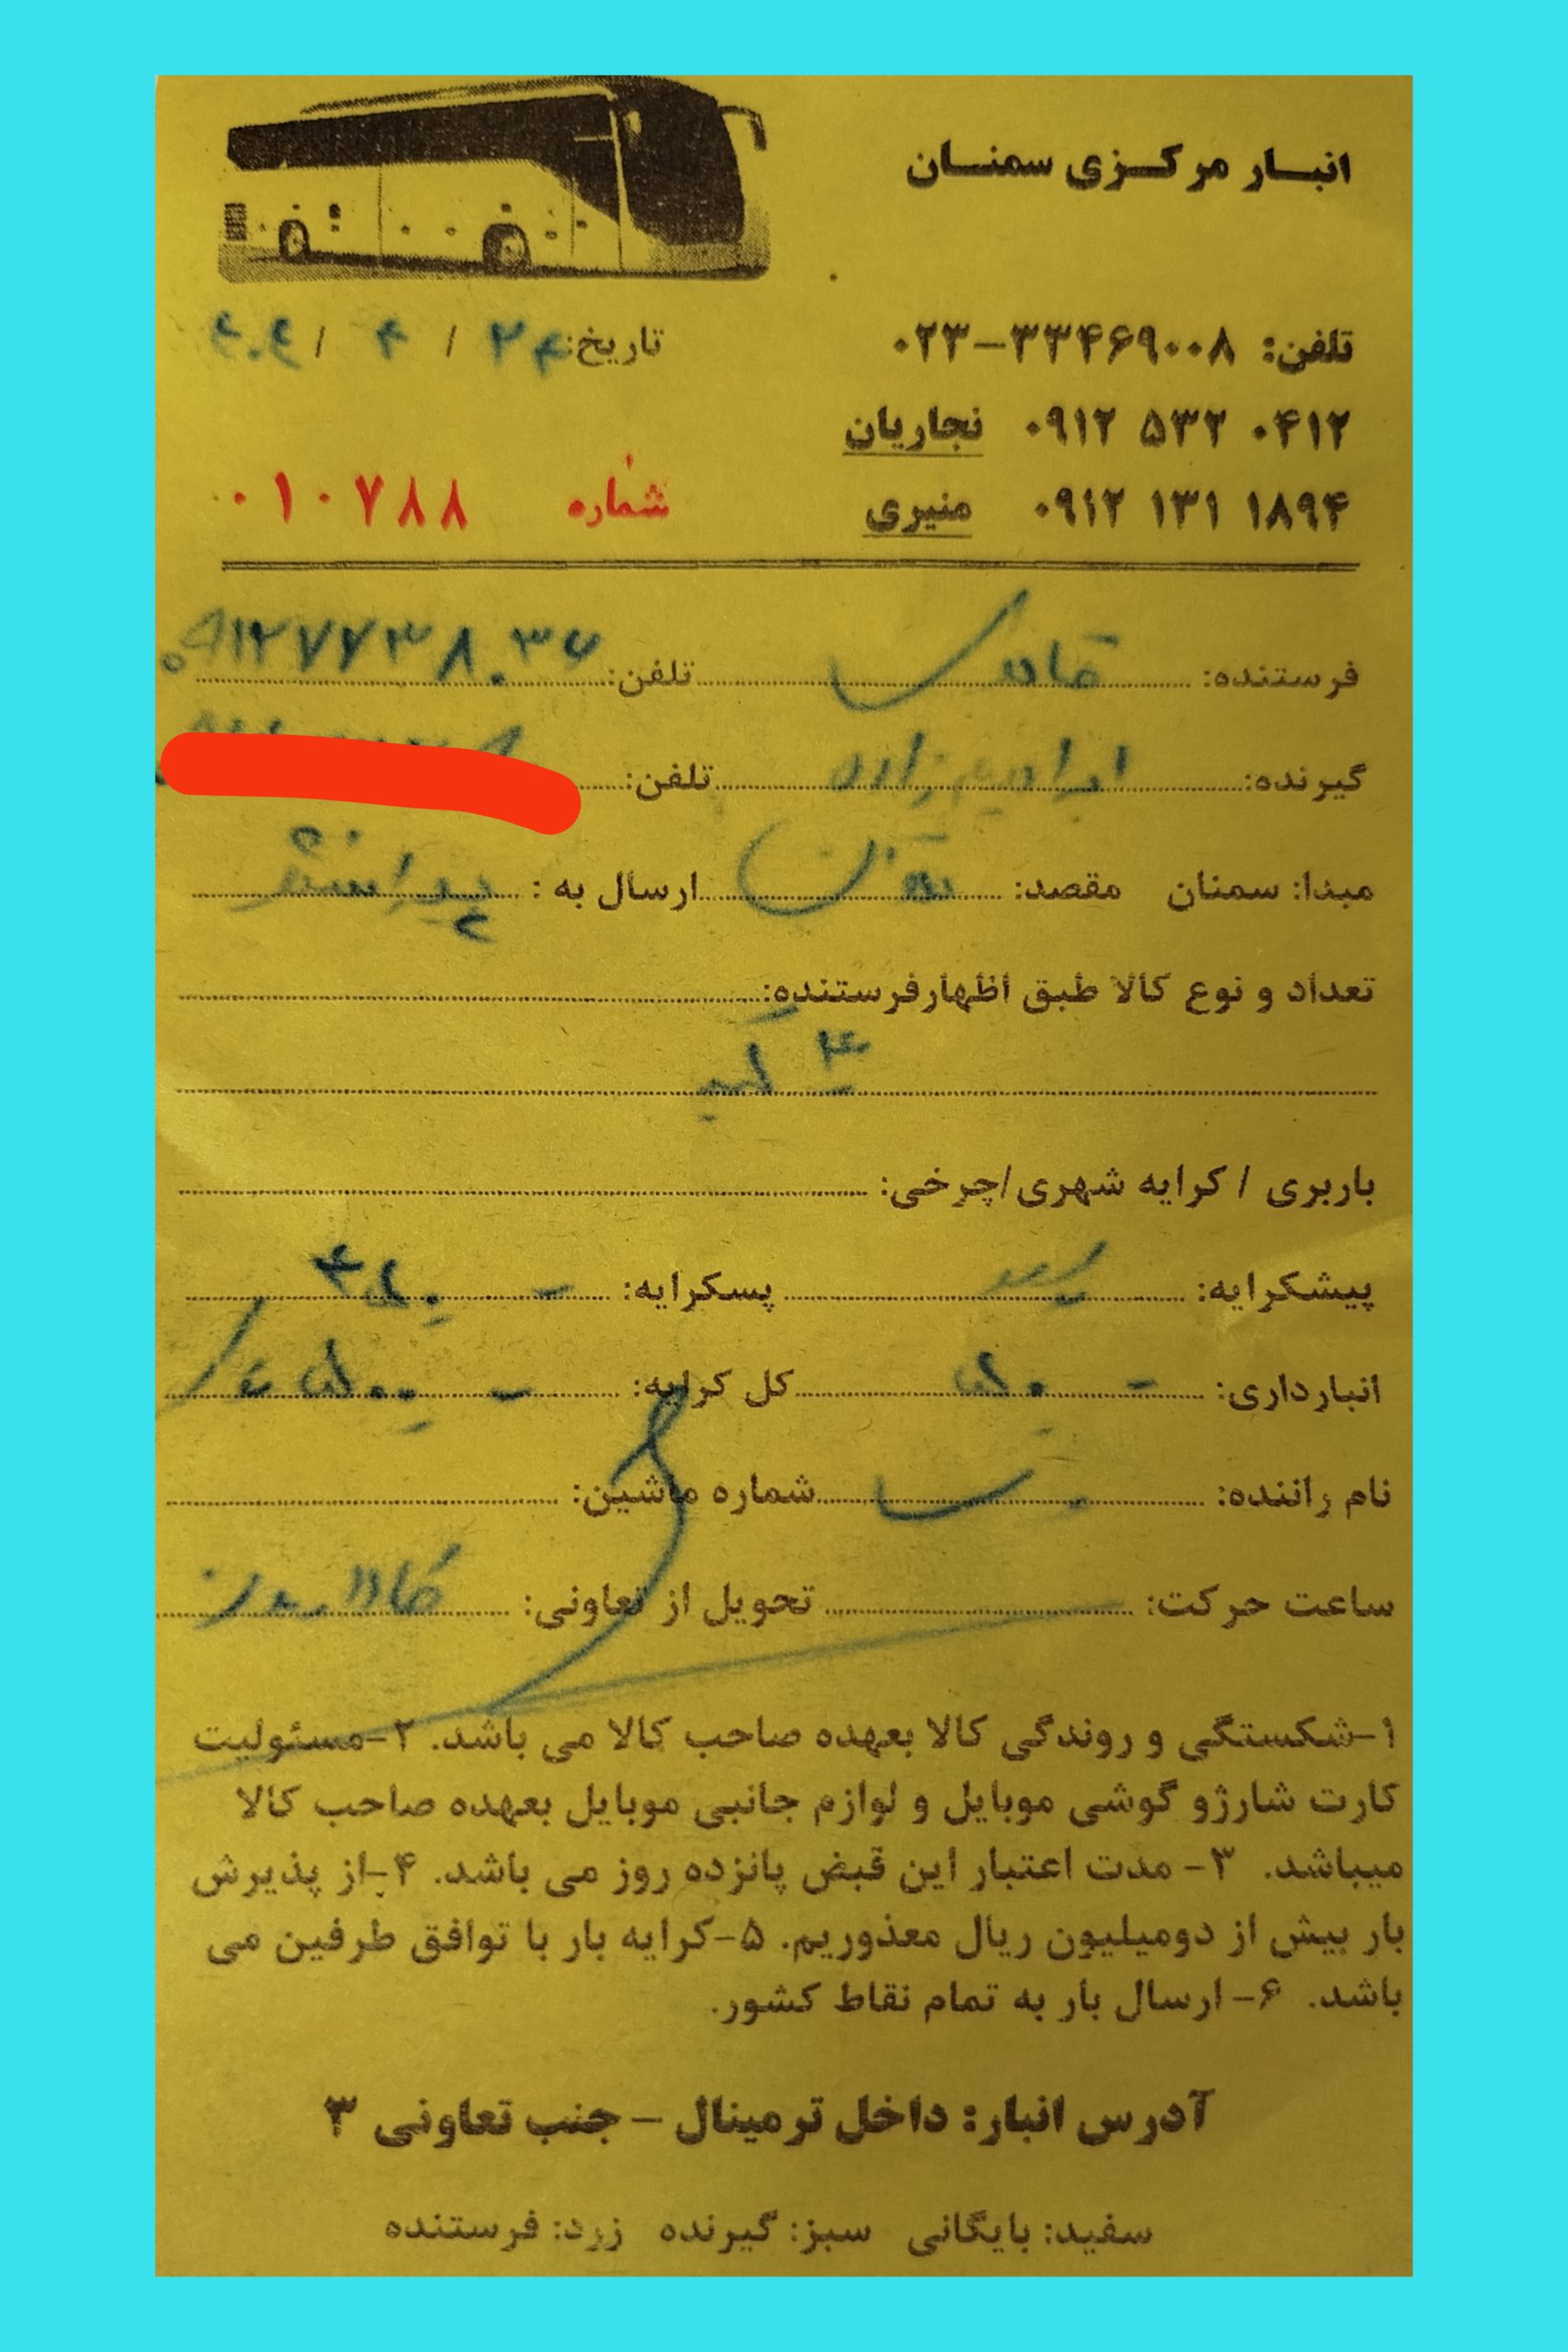 انبار مرکزی سمنان
تلفن: ۰۲۳-۳۳۴۶۹۰۰۸ تاریخ: ۲۴ / ۴ / ۴۰۴
۰۹۱۲ ۵۳۲ ۰۴۱۲ نجاریان
۰۹۱۲ ۱۳۱ ۱۸۹۴ منیری شماره ۰۱۰۷۸۸
فرستنده: تلفن:
گیرنده: ابراهیم زاده تلفن:
مبدا: سمنان مقصد: ارسال به :
تعداد و نوع کالا طبق اظهارفرستنده:
باربری / کرایه شهری/چرخی:
پیشکرایه: پسکرایه:
انبارداری: ۵۰ - کل کرایه:
نام راننده: شماره ماشین:
ساعت حرکت: تحویل از تعاونی:
۱-شکستگی و روندگی کالا بعهده صاحب کالا می باشد. ۲-مسئولیت
کارت شارژو گوشی موبایل و لوازم جانبی موبایل بعهده صاحب کالا
میباشد. ۳- مدت اعتبار این قبض پانزده روز می باشد. ۴-از پذیرش
بار بیش از دومیلیون ریال معذوریم. ۵-کرایه بار با توافق طرفین می
باشد. ۶- ارسال بار به تمام نقاط کشور.
آدرس انبار: داخل ترمینال – جنب تعاونی ۳
سفید: بایگانی سبز: گیرنده زرد: فرستنده